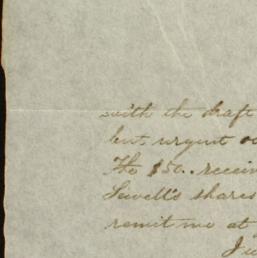 with the draft
but urgent
The $50. receiv
Sewell's shares
remit me at